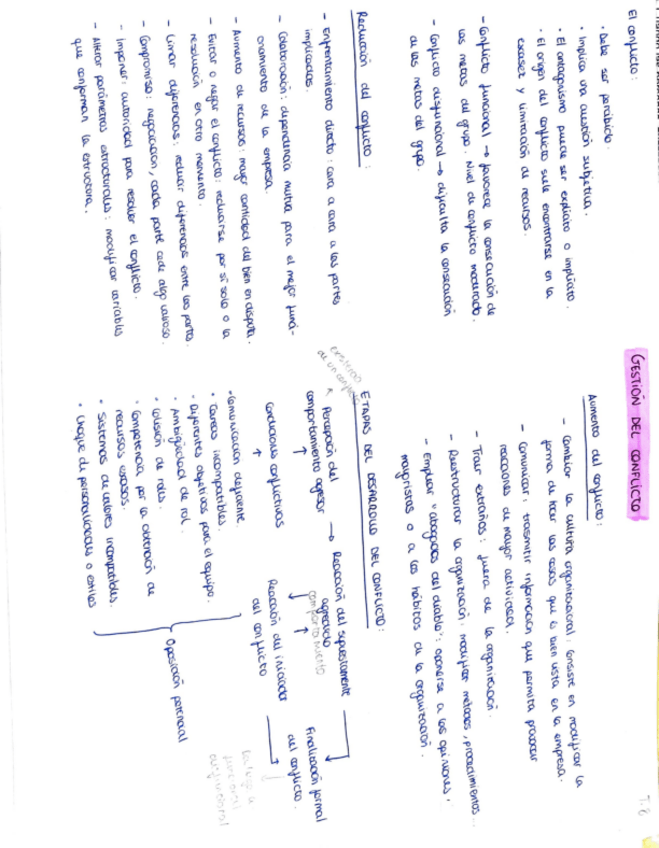 GESTIÓN DEL CONFLICTO
T.8
El conflicto:
· Debe ser percibido.
· Implica una cuestión subjetiva.
· El antagonismo puede ser explícito o implícito.
· El origen del conflicto suele encontrarse en la
escasez y limitación de recursos.
- Conflicto funcional → favorece la consecución de
las metas del grupo. Nivel de conflicto moderado.
- Conflicto disfuncional → dificulta la consecución
de las metas del grupo.
Reducción del conflicto:
- Enfrentamiento directo: cara a cara a las partes
implicadas.
- Colaboración: dependencia mutua para el mejor funci-
onamiento de la empresa.
- Aumento de recursos: mayor cantidad del bien en disputa.
- Evitar o negar el conflicto: reducirse por sí solo o la
resolución en otro momento.
- Limar diferencias: reducir diferencias entre las partes.
- Compromiso: negociación, cada parte cede algo valioso.
- Imponer: autoridad para resolver el conflicto.
- Alterar parámetros estructurales: modificar variables
que conforman la estructura.
Aumento del conflicto:
- Cambiar la cultura organizacional: consiste en modificar la
forma de hacer las cosas que es bien vista en la empresa.
- Comunicar: transmitir información que permita provocar
reacciones de mayor actividad.
- Traer extraños: fuera de la organización.
- Reestructurar la organización: modificar métodos, procedimientos...
- Emplear "abogados del diablo": oponerse a las opiniones,
mayoristas o a los hábitos de la organización.
ETAPAS DEL DESARROLLO DEL CONFLICTO:
existencia
de un conflicto
Percepción del
comportamiento agresor → Reacción del supuestamente
agredido
comportamiento
Condiciones conflictivas
Reacción del iniciador
del conflicto
Finalización formal
del conflicto.
funcional
disfuncional
· Comunicación deficiente.
· Tareas incompatibles.
· Diferentes objetivos para el equipo.
· Ambigüedad de rol.
· Colisión de roles.
· Competencia por la obtención de
recursos escasos.
· Sistemas de valores incompatibles.
· Choque de personalidades o estilos
Oposición potencial